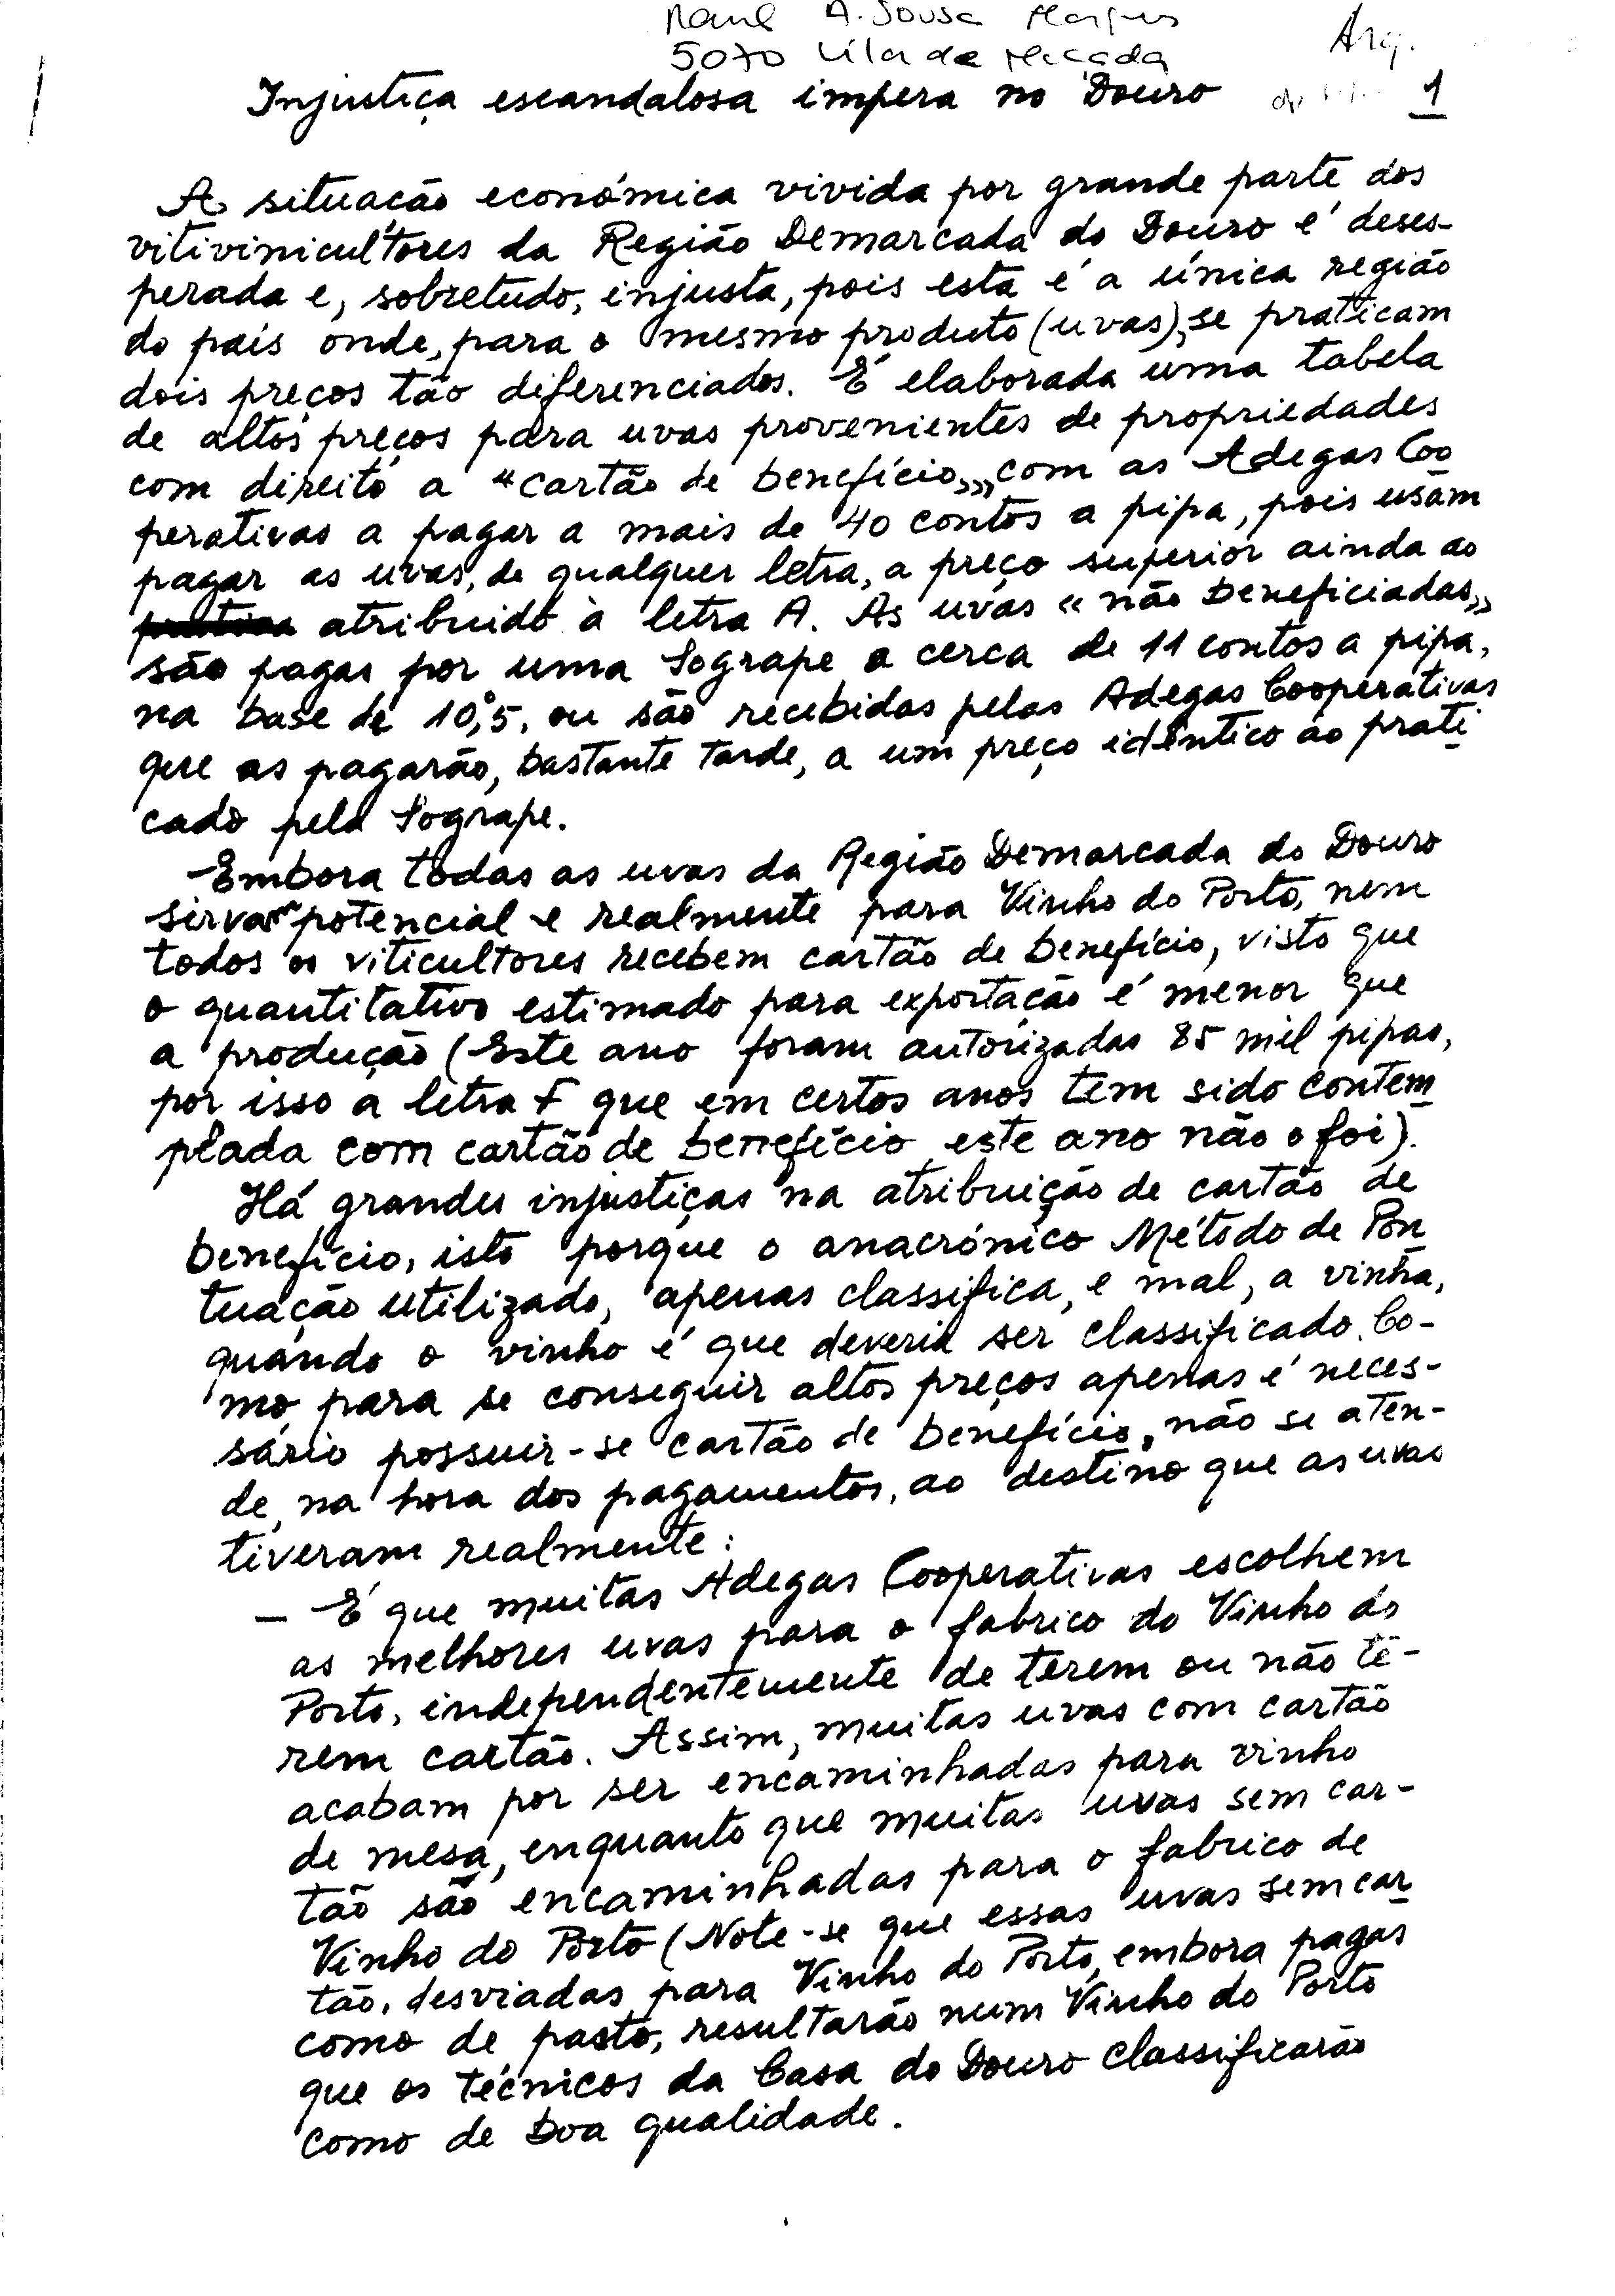 Raul A. Sousa
5070 Vila de
Arq.
Injustiça escandalosa impera no Douro
1
A situação económica vivida por grande parte dos
vitivinicultores da Região Demarcada do Douro é deses-
perada e, sobretudo, injusta, pois esta é a única região
do país onde, para o mesmo produto (uvas), se praticam
dois preços tão diferenciados. É elaborada uma tabela
de altos preços para uvas provenientes de propriedades
com direito a "cartão de benefício,,, com as Adegas Coo
perativas a pagar a mais de 40 contos a pipa, pois usam
pagar as uvas, de qualquer letra, a preço superior ainda ao
atribuído à letra A. As uvas « não beneficiadas,,
são pagas por uma Sogrape a cerca de 11 contos a pipa,
na base de 10°,5, ou são recebidas pelas Adegas Cooperativas
que as pagarão, bastante tarde, a um preço idêntico ao prati
cado pela Sogrape.
Embora todas as uvas da Região Demarcada do Douro
sirvam potencial e realmente para Vinho do Porto, nem
todos os viticultores recebem cartão de benefício, visto que
o quantitativo estimado para exportação é menor que
a produção (Este ano foram autorizadas 85 mil pipas,
por isso a letra F que em certos anos tem sido contem
plada com cartão de benefício este ano não o foi).
Há grandes injustiças na atribuição de cartão de
benefício, isto porque o anacrónico Método de Pon
tuação utilizado, apenas classifica, e mal, a vinha,
quando o vinho é que deveria ser classificado. Co-
mo para se conseguir altos preços apenas é neces-
sário possuir-se cartão de benefício, não se aten-
de, na hora dos pagamentos, ao destino que as uvas
tiveram realmente:
- É que muitas Adegas Cooperativas escolhem
as melhores uvas para o fabrico do Vinho do
Porto, independentemente de terem ou não te-
rem cartão. Assim, muitas uvas com cartão
acabam por ser encaminhadas para vinho
de mesa, enquanto que muitas uvas sem car-
tão são encaminhadas para o fabrico de
Vinho do Porto (Note-se que essas uvas sem car
tão, desviadas para Vinho do Porto, embora pagas
como de pasto, resultarão num Vinho do Porto
que os técnicos da Casa do Douro classificarão
como de boa qualidade.